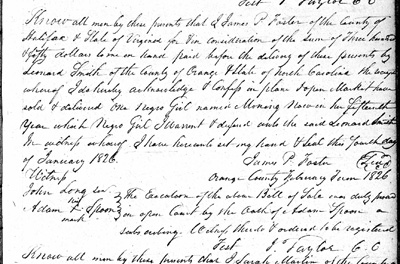 Test J Taylor C C
Know all men by these presents that I James P Foster of the County of
Halifax & State of Virginia for & in consideration of the Sum of Three hundred
& fifty dollars to me in hand paid before the delivery of these presents by
Leonard Smith of the County of Orange & State of North Carolina the receipt
whereof I do hereby acknowledge & Confess in plain & open Market have
sold & delivered one Negro Girl named Mourning Now in her fifteenth
Year which Negro Girl I warrant & defend unto the said Leonard Smith
In witness whereof I have hereunto set my hand & Seal this fourth day
of January 1826. James P. Foster
Witness Orange County February Term 1826
John Long sen
Adam his Spoon mark
The Execution of the above Bill of Sale was duly proved
in open Court by the Oath of Adam Spoon a
subscribing Witness thereto & ordered to be registered
Test J. Taylor C. C.
Know all men by these presents that I Sarah Martin of the